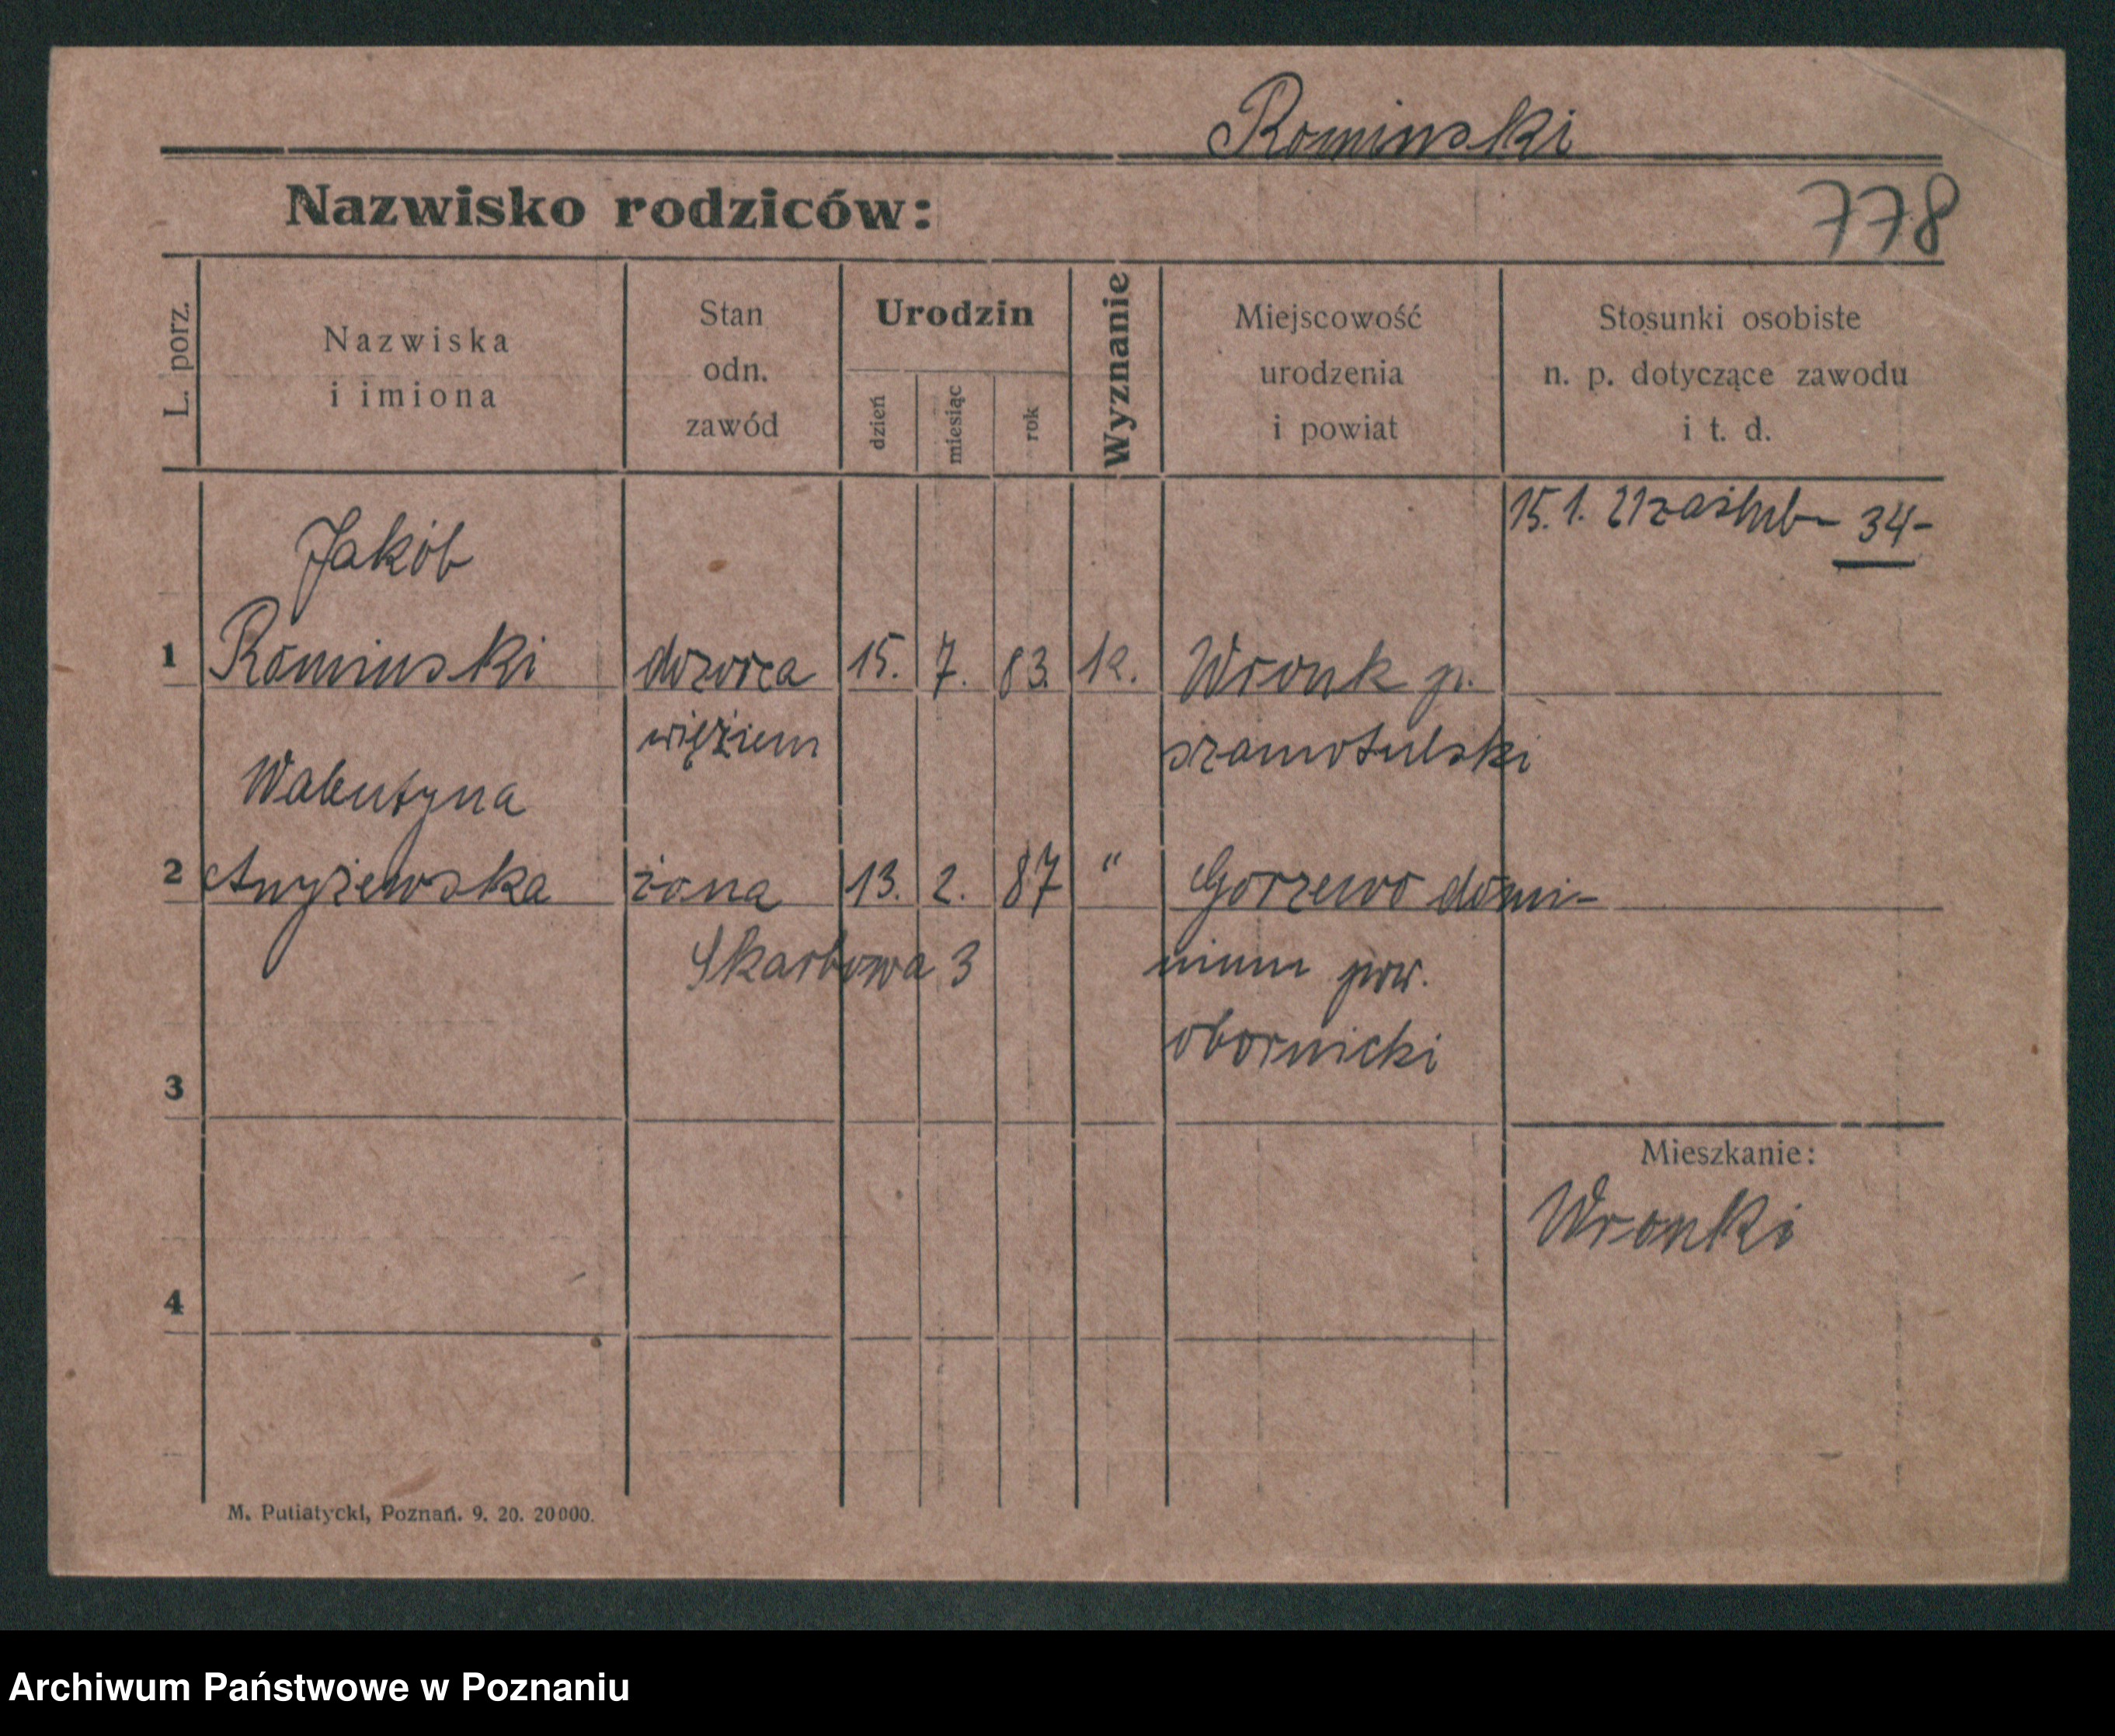 Rominski
Nazwisko rodziców:
778
L. porz.
Nazwiska
i imiona
Stan
odn.
zawód
Urodzin
dzień
miesiąc
rok
Wyznanie
Miejscowość
urodzenia
i powiat
Stosunki osobiste
n. p. dotyczące zawodu
i t. d.
15. 1. 21 zaślub- 34-
Jakób
1 Rominski dozorca 15. 7. 83. k. Wronk p.
więziem szamotulski
Walentyna
2 Anyżewska żona 13. 2. 87 " Gorzewo domi-
Skarbowa 3 nium pow.
obornicki
3
Mieszkanie:
Wronki
4
M. Putiatycki, Poznań. 9. 20. 20000.
Archiwum Państwowe w Poznaniu